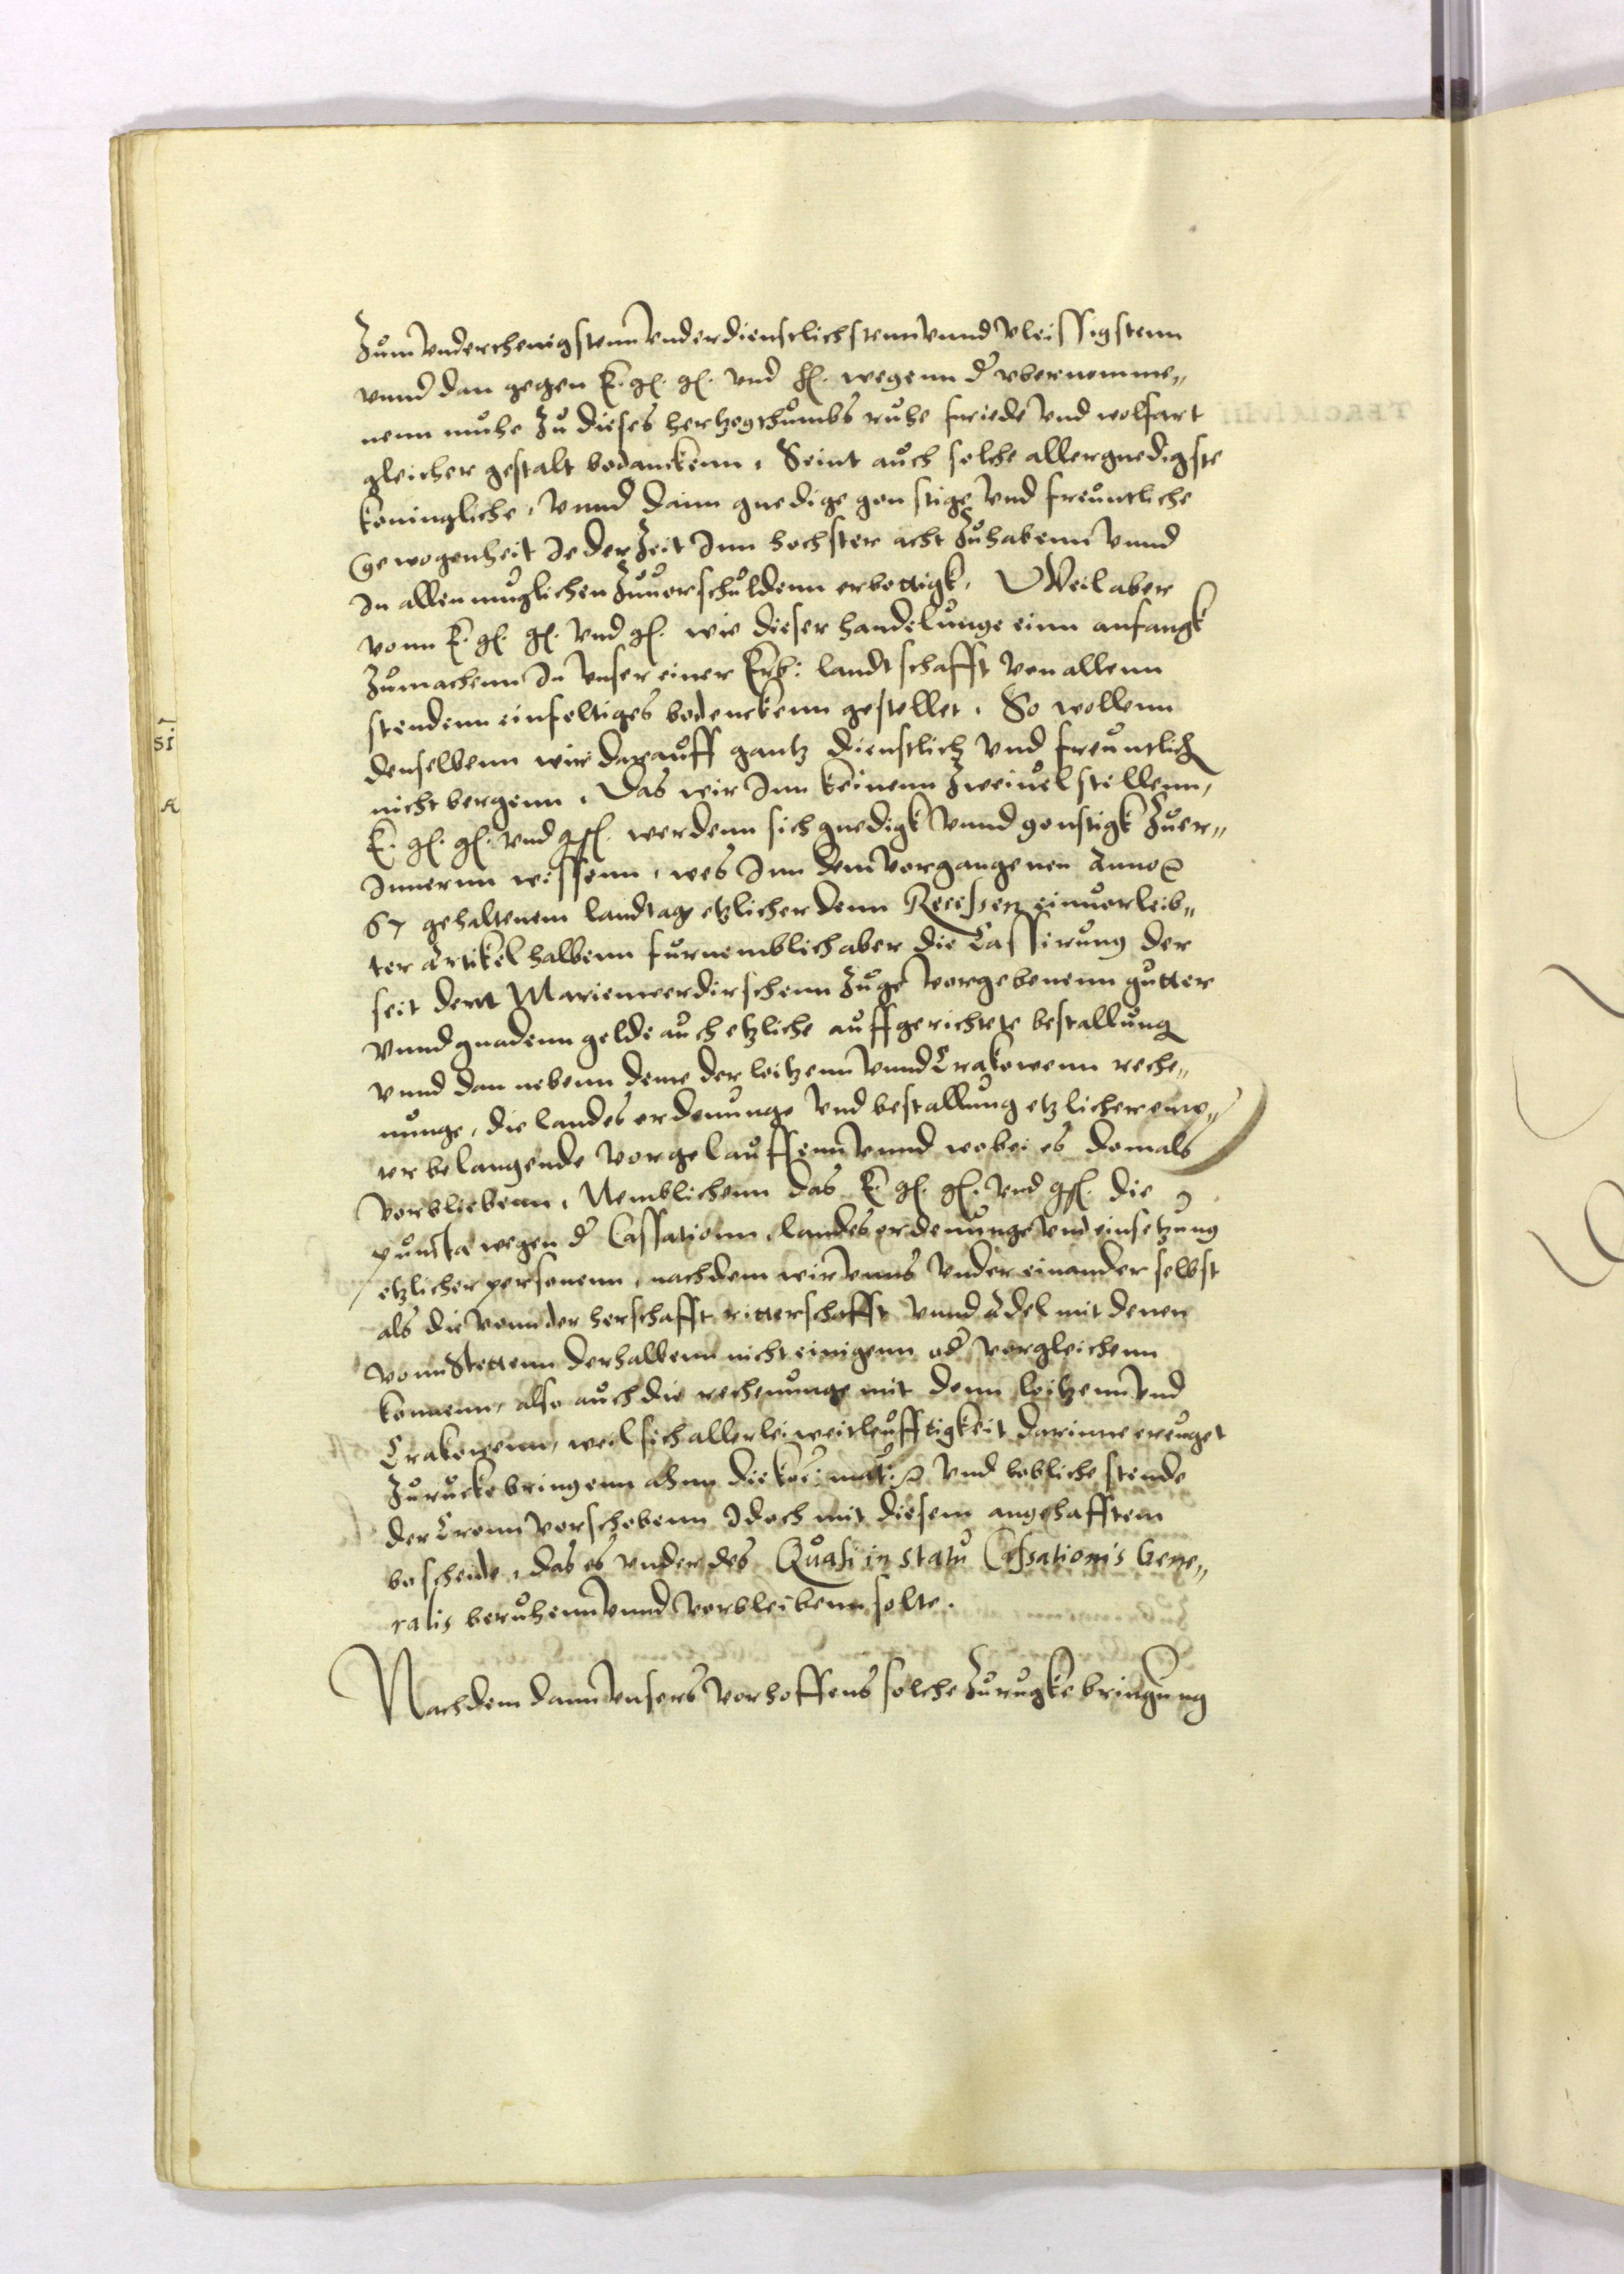 Zum Underthenigstenn Underdienstlichstenn Unnd Vleissigstenn
unnd dan gegen E. g. g. und h. wegenn der ubernomme„
nenn muhe Zu dieses hertzogthumbs ruhe friede Und wolfart
gleicher gestalt bedanckenn. Seint auch solche allergnedigste
koningliche, Unnd dann gnedige gonstige Und freuntliche
Gewogenheit Jeder Zeit Jnn hochster acht Zuhabenn Unnd
Jn allen muglichen Zuuerschuldenn erbottigk, Weil aber
vonn E. g. g. Und g. wie dieser handelunge einn anfangk
Zumachenn Jn Unser einer Erb: landtschafft von allenn
stendenn einfeltiges bedenckenn gestellet. So wollenn
denselbenn wir darauff gantz dienstlich Und freuntlich
nicht bergenn. Das wir Jnn keinenn Zweiuel stellenn,
E. g. g. Und g. werdenn sich gnedigk Unnd gonstigk Zuer„
Jnnernn wissenn, wes Jnn dem Vorgangenen Anno
67 gehaltenem landtage etzlicher denn Recessen einuorleib„
ter Artikel halbenn furnemblich aber die Cassirung der
seit dem Marienwerdirschenn Zuge Vorgebenenn gutter
Unnd gnadenn gelde auch etzliche auffgerichtete bestallung
Unnd dan nebenn deme der loitzenn Unnd Crakowenn reche„
nunge, die landes ordenunge Und bestallung etzlicher emp„
ter belangende Vorgelauffenn Unnd wobei es domals
Vorbliebenn, Nemblichenn das E. g. g. Und g. die
puncta wegen der Cassationn, landes ordenunge Und einsetzung
etzlicher personenn, nachdem wir Unns Under einander selbst
als die Vonn der herschafft ritterschafft Unnd Adel mit denen
vonn Stettenn derhalbenn nicht einigenn oder Vorgleichenn
konnenn, also auch die rechenunge mit denn loitzenn Und
Crakowenn, weil sich allerlei weitleufftigkeit darinne ereuget
Zurucke bringenn ahnn die ko: mat: Und lobliche stende
der Cronn Vorschobenn Jdoch mit diesem angehafftem
bescheide, das es under des Quasi in statu Cassationis Gene„
ralis beruhenn Unnd Vorbleibenn solte.
Nachdem dann Unsers Vorhoffens solche Zurugke bringung